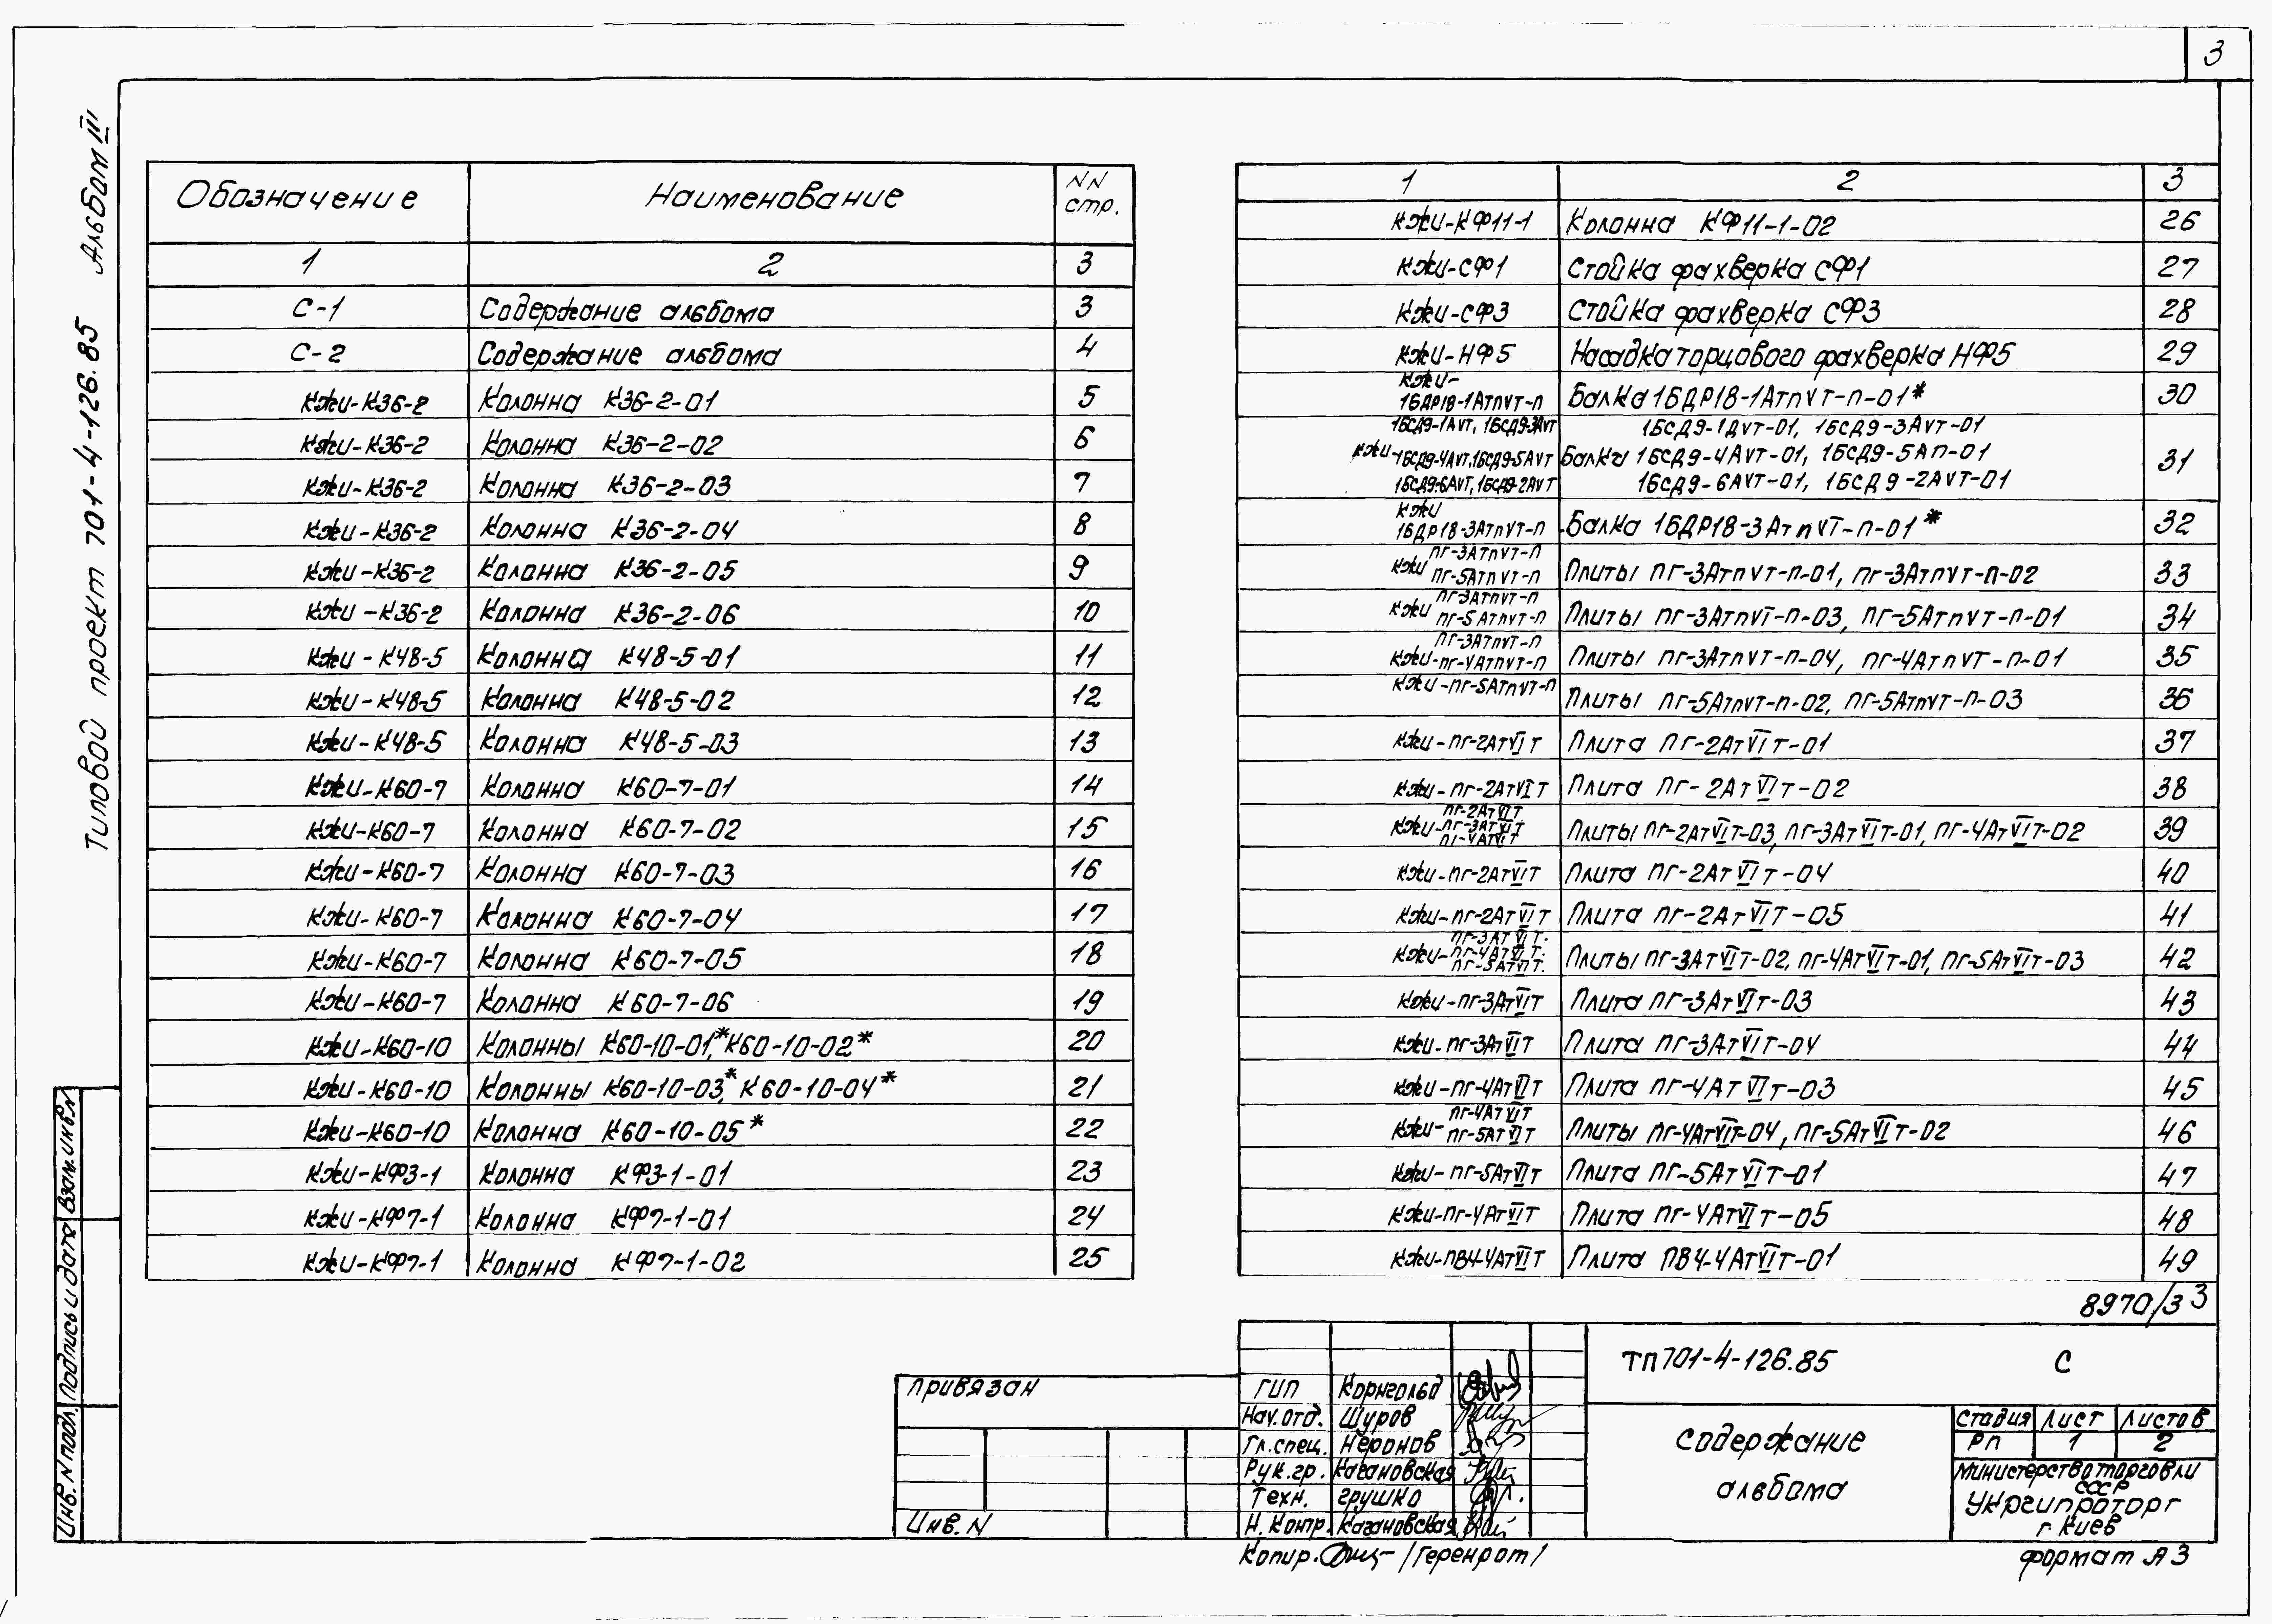 3
Типовой проект 701-4-126.85 Альбом III
Обозначение Наименование NN стр.
1 2 3
С-1 Содержание альбома 3
С-2 Содержание альбома 4
КЖИ-К36-2 Колонна К36-2-01 5
КЖИ-К36-2 Колонна К36-2-02 6
КЖИ-К36-2 Колонна К36-2-03 7
КЖИ-К36-2 Колонна К36-2-04 8
КЖИ-К36-2 Колонна К36-2-05 9
КЖИ-К36-2 Колонна К36-2-06 10
КЖИ-К48-5 Колонна К48-5-01 11
КЖИ-К48-5 Колонна К48-5-02 12
КЖИ-К48-5 Колонна К48-5-03 13
КЖИ-К60-7 Колонна К60-7-01 14
КЖИ-К60-7 Колонна К60-7-02 15
КЖИ-К60-7 Колонна К60-7-03 16
КЖИ-К60-7 Колонна К60-7-04 17
КЖИ-К60-7 Колонна К60-7-05 18
КЖИ-К60-7 Колонна К60-7-06 19
КЖИ-К60-10 Колонны К60-10-01*, К60-10-02* 20
КЖИ-К60-10 Колонны К60-10-03*, К60-10-04* 21
КЖИ-К60-10 Колонна К60-10-05* 22
КЖИ-КФ3-1 Колонна КФ3-1-01 23
КЖИ-КФ7-1 Колонна КФ7-1-01 24
КЖИ-КФ7-1 Колонна КФ7-1-02 25
1 2 3
КЖИ-КФ11-1 Колонна КФ11-1-02 26
КЖИ-СФ1 Стойка фахверка СФ1 27
КЖИ-СФ3 Стойка фахверка СФ3 28
КЖИ-НФ5 Насадка торцового фахверка НФ5 29
КЖИ-
1БДР18-1АтпVТ-п Балка 1БДР18-1АтпVТ-п-01* 30
1БСД9-1АVТ, 1БСД9-3АVТ 1БСД9-1АVТ-01, 1БСД9-3АVТ-01
КЖИ-1БСД9-4АVТ, 1БСД9-5АVТ Балки 1БСД9-4АVТ-01, 1БСД9-5АП-01 31
1БСД9-6АVТ, 1БСД9-2АVТ 1БСД9-6АVТ-01, 1БСД9-2АVТ-01
КЖИ
1БДР18-3АтпVТ-п Балка 1БДР18-3АтпVТ-п-01* 32
пг-3АтпVТ-п
КЖИ пг-5АтпVТ-п Плиты пг-3АтпVТ-п-01, пг-3АтпVТ-п-02 33
пг-3АтпVТ-п
КЖИ пг-5АтпVТ-п Плиты пг-3АтпVТ-п-03, пг-5АтпVТ-п-01 34
пг-3АтпVТ-п
КЖИ-пг-4АтпVТ-п Плиты пг-3АтпVТ-п-04, пг-4АтпVТ-п-01 35
КЖИ-пг-5АтпVТ-п Плиты пг-5АтпVТ-п-02, пг-5АтпVТ-п-03 36
КЖИ-пг-2АтVIТ Плита пг-2АтVIТ-01 37
КЖИ-пг-2АтVIТ Плита пг-2АтVIТ-02 38
пг-2АтVIТ
КЖИ-пг-3АтVIТ Плиты пг-2АтVIТ-03, пг-3АтVIТ-01, пг-4АтVIТ-02 39
пг-4АтVIТ
КЖИ-пг-2АтVIТ Плита пг-2АтVIТ-04 40
КЖИ-пг-2АтVIТ Плита пг-2АтVIТ-05 41
пг-3АтVIТ.
КЖИ-пг-4АтVIТ. Плиты пг-3АтVIТ-02, пг-4АтVIТ-01, пг-5АтVIТ-03 42
пг-5АтVIТ.
КЖИ-пг-3АтVIТ Плита пг-3АтVIТ-03 43
КЖИ-пг-3АтVIТ Плита пг-3АтVIТ-04 44
КЖИ-пг-4АтVIТ Плита пг-4АтVIТ-03 45
пг-4АтVIТ
КЖИ-пг-5АтVIТ Плиты пг-4АтVIТ-04, пг-5АтVIТ-02 46
КЖИ-пг-5АтVIТ Плита пг-5АтVIТ-01 47
КЖИ-пг-4АтVIТ Плита пг-4АтVIТ-05 48
КЖИ-ПВ4-4АтVIТ Плита ПВ4-4АтVIТ-01 49
8970/3 3
Взам.инв.N
Подпись и дата
Инв. N подл.
Привязан
Инв. N
ГИП Корнгольд
Нач.отд. Шуров
Гл.спец. Неронов
Рук.гр. Кагановская
Техн. Грушко
Н. Контр. Кагановская
ТП 701-4-126.85 С
Содержание
альбома
Стадия Лист Листов
РП 1 2
Министерство торговли
СССР
Укргипроторг
г. Киев
Копир. /Геренрот/
Формат А3